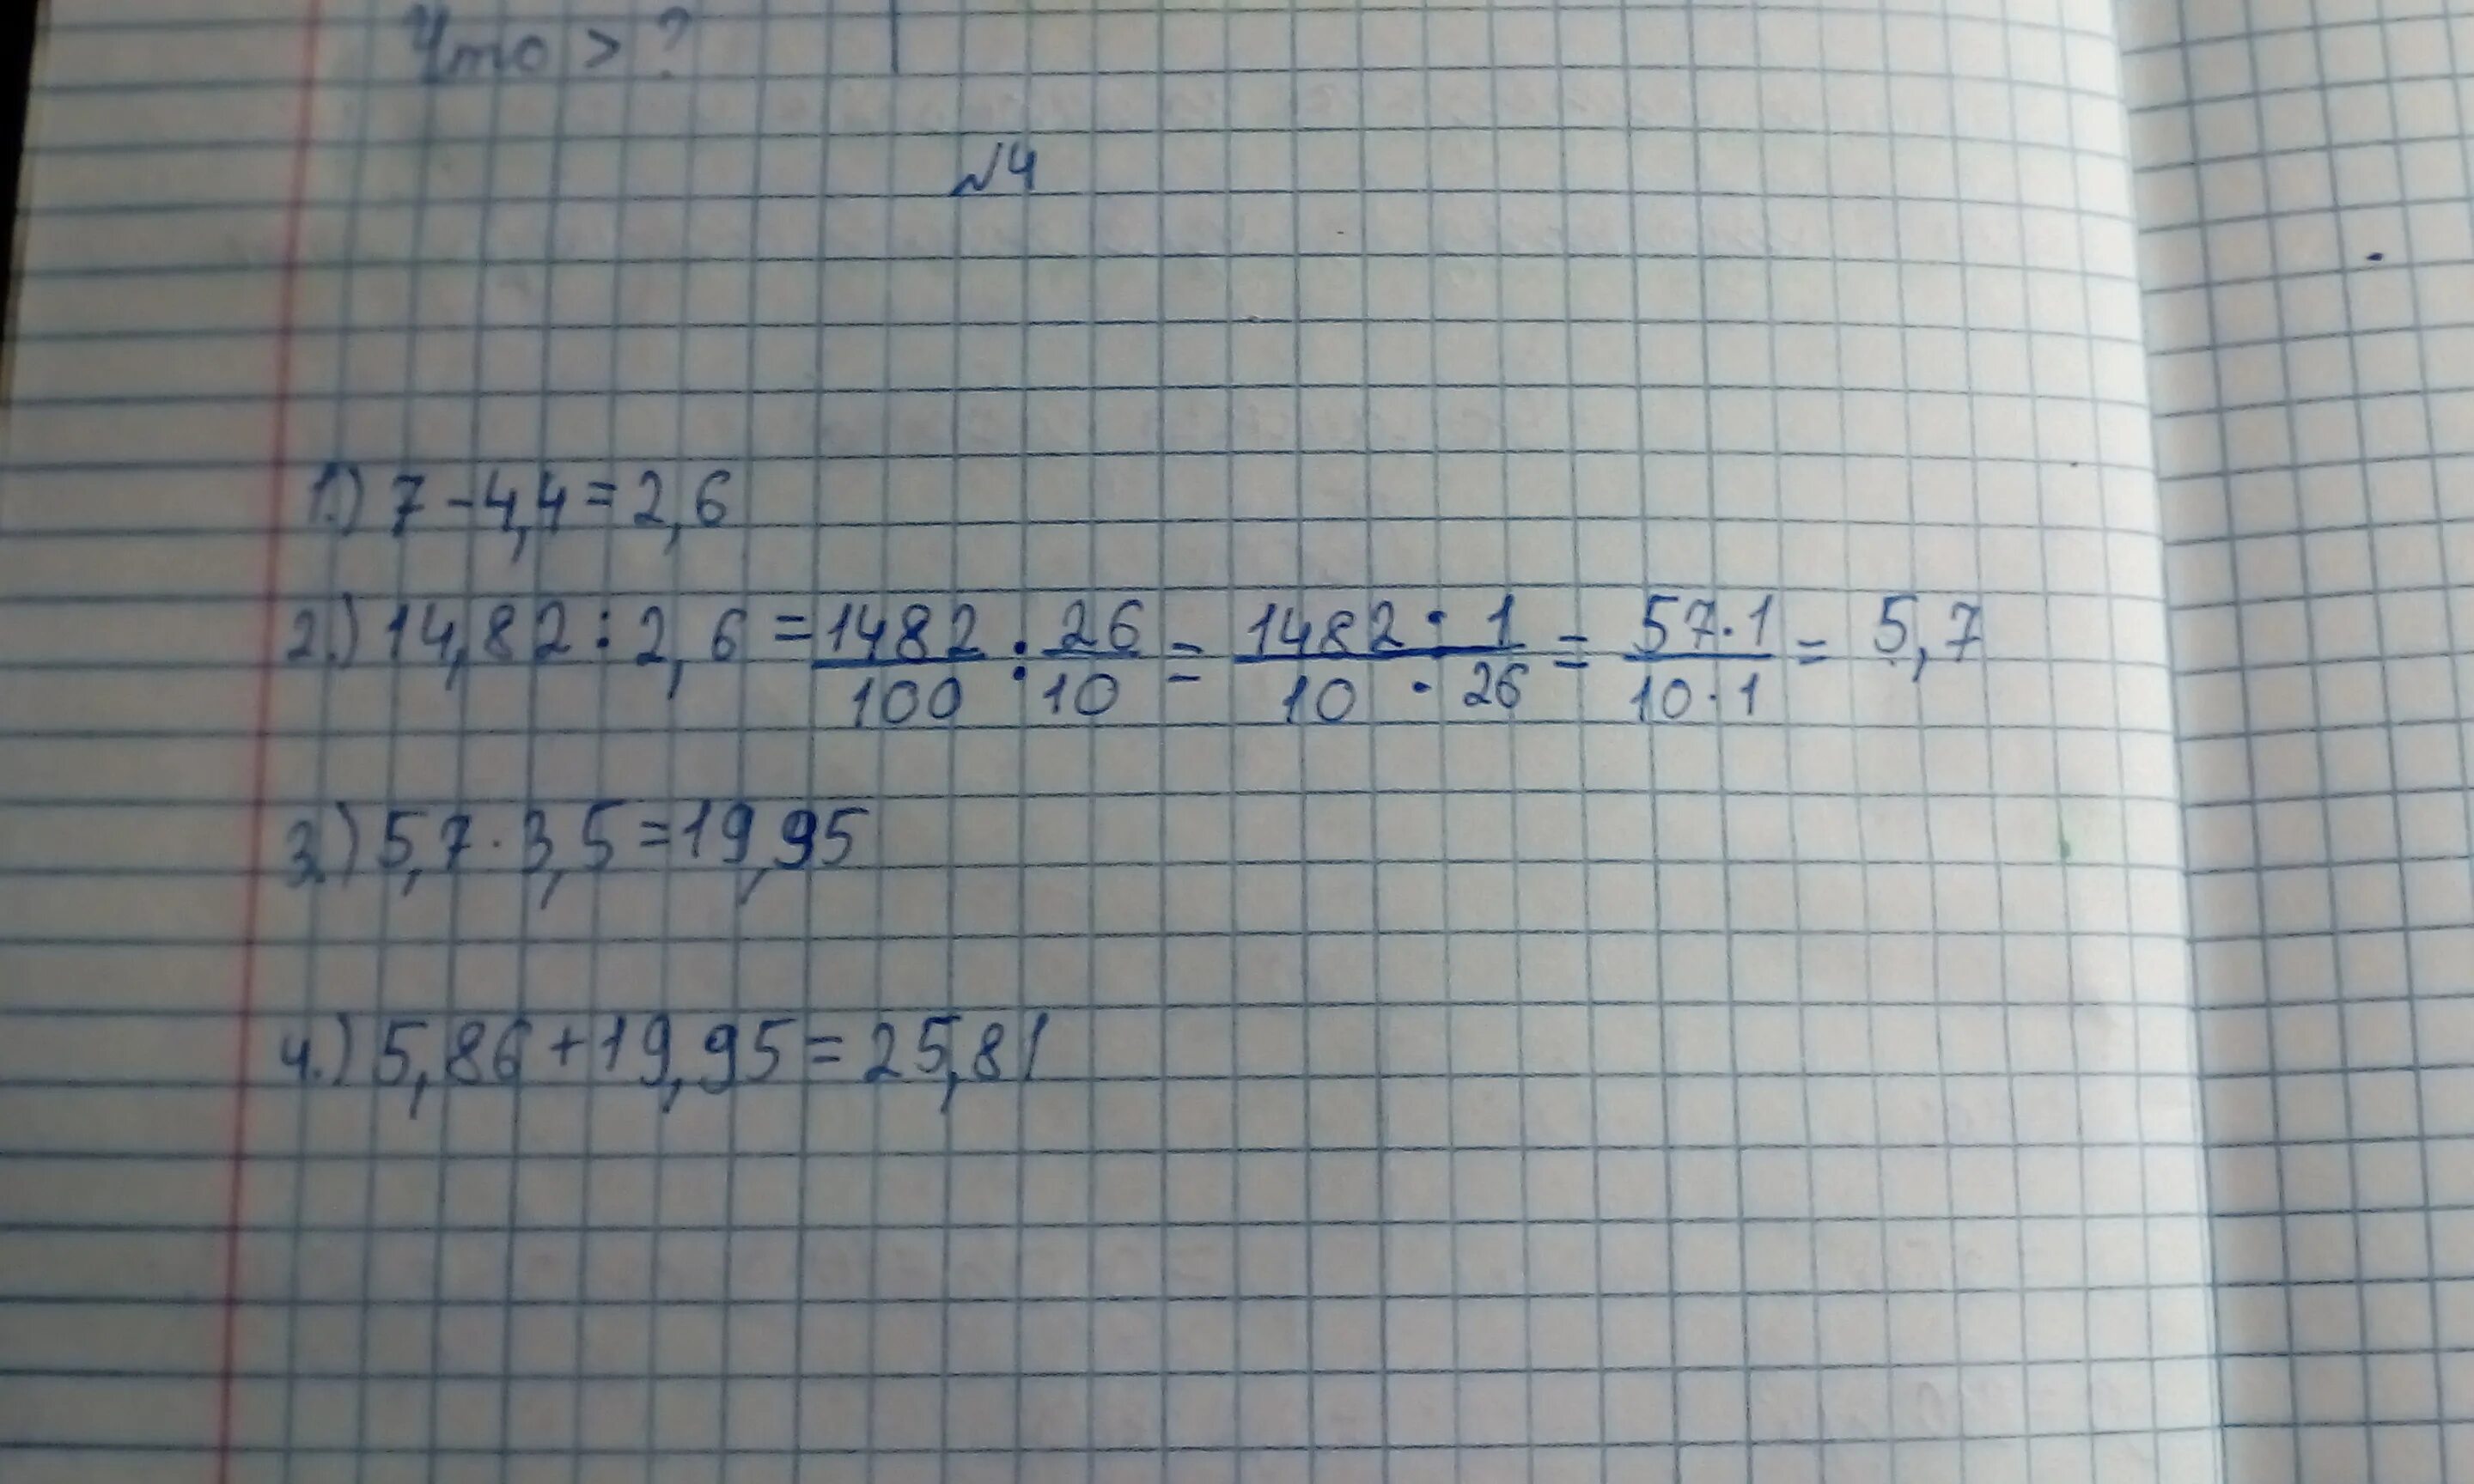 Что > ?
№4
1.) 7 - 4,4 = 2,6
2.) 14,82 : 2,6 = 1482/100 : 26/10 = 1482 · 1/10 · 26 = 57 · 1/10 · 1 = 5,7
3.) 5,7 · 3,5 = 19,95
4.) 5,86 + 19,95 = 25,81